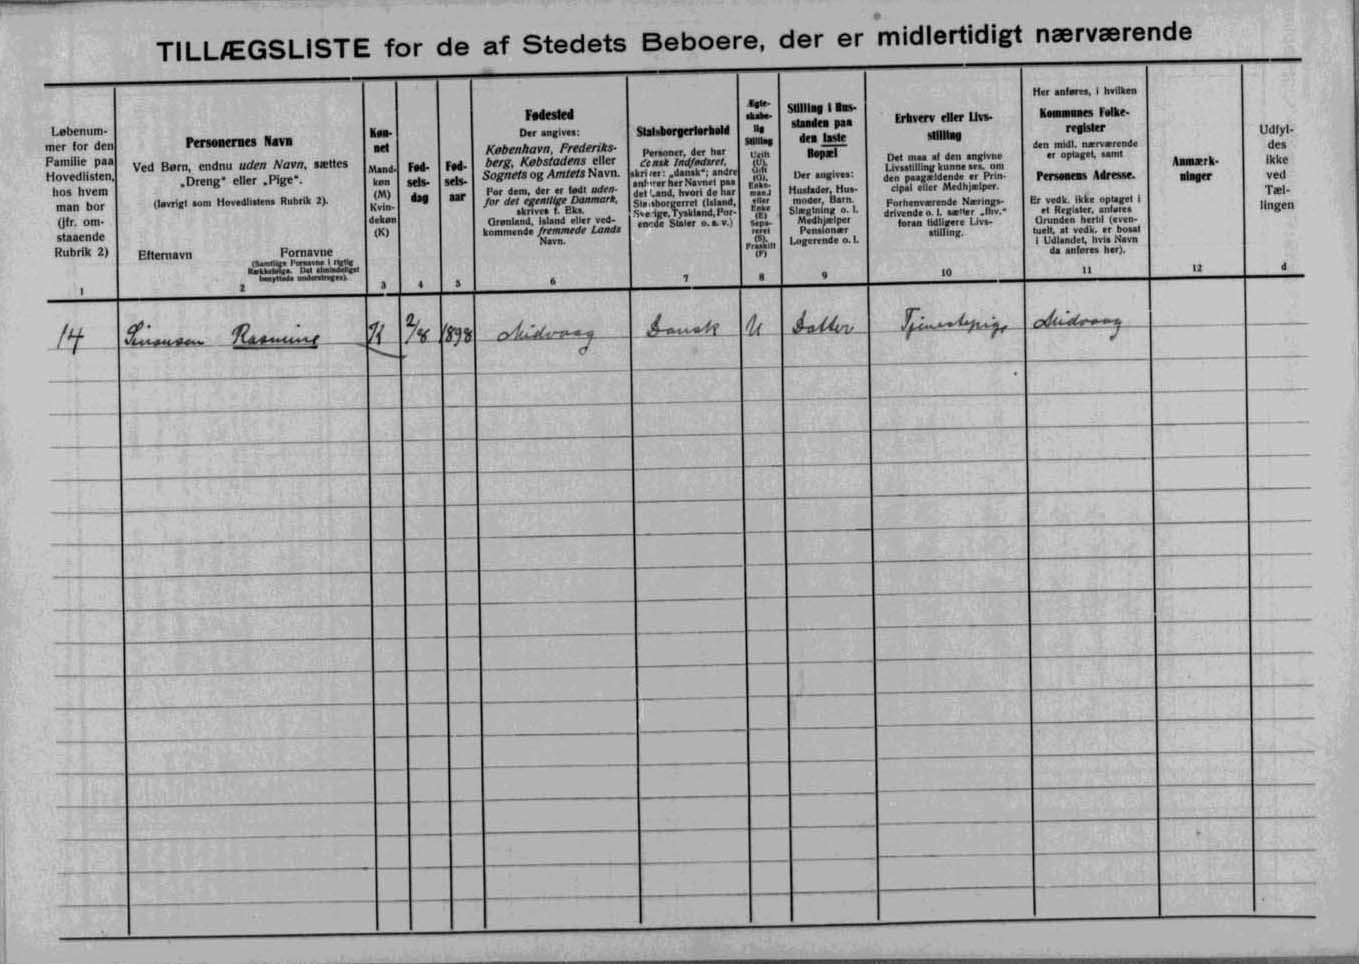 TILLÆGSLISTE for de af Stedets Beboere, der er midlertidigt nærværende
Løbenum-
mer for den
Familie paa
Hovedlisten,
hos hvem
man bor
(jfr. om-
staaende
Rubrik 2)
1
Personernes Navn
Ved Børn, endnu uden Navn, sættes
„Dreng“ eller „Pige“.
(Iøvrigt som Hovedlistens Rubrik 2).
Efternavn
Fornavne
(Samtlige Fornavne i rigtig
Rækkefølge. Det almindeligst
benyttede understreges).
2
Køn-
net
Mand-
køn
(M)
Kvin-
dekøn
(K)
3
Fød-
sels-
dag
4
Fød-
sels-
aar
5
Fødested
Der angives:
København, Frederiks-
berg, Købstadens eller
Sognets og Amtets Navn.
For dem, der er født uden-
for det egentlige Danmark,
skrives f. Eks.
Grønland, Island eller ved-
kommende fremmede Lands
Navn.
6
Statsborgerforhold
Personer, der har
dansk Indfødsret,
skriver: „dansk“; andre
anfører her Navnet paa
det Land, hvori de har
Statsborgerret (Island,
Sverige, Tyskland, For-
enede Stater o. s. v.)
7
Ægte-
skabe-
lig
Stilling
Ugift
(U),
Gift
(G),
Enke-
mand
eller
Enke
(E)
Sepa-
reret
(S),
Fraskilt
(F)
8
Stilling i Hus-
standen paa
den faste
Bopæl
Der angives:
Husfader, Hus-
moder, Barn.
Slægtning o. l.
Medhjælper
Pensionær
Logerende o. l.
9
Erhverv eller Livs-
stilling
Det maa af den angivne
Livsstilling kunne ses, om
den paagældende er Prin-
cipal eller Medhjælper.
Forhenværende Nærings-
drivende o. l. sætter „fhv.“
foran tidligere Livs-
stilling.
10
Her anføres, i hvilken
Kommunes Folke-
register
den midl. nærværende
er optaget, samt
Personens Adresse.
Er vedk. ikke optaget i
et Register, anføres
Grunden hertil (even-
tuelt, at vedk. er bosat
i Udlandet, hvis Navn
da anføres her).
11
Anmærk-
ninger
12
Udfyl-
des
ikke
ved
Tæl-
lingen
d
14 Simonsen Rasmine K 2/8 1898 Midvaag Dansk U Datter Tjenestepige Midvaag